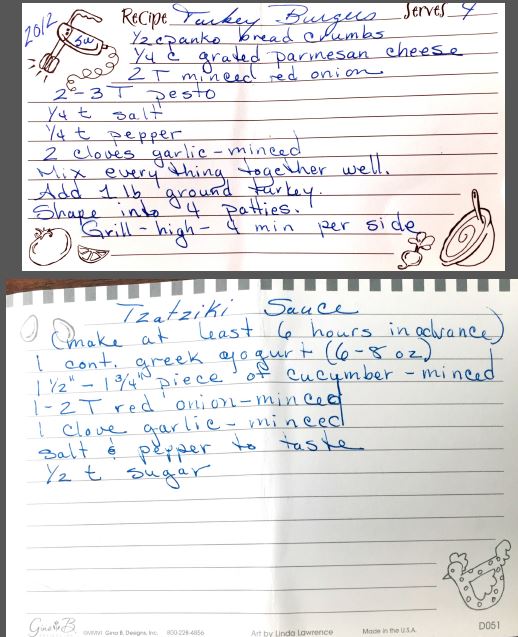 2012
Recipe Turkey Burgers Serves 4
1/2 c panko bread crumbs
1/4 c grated parmesan cheese
2 T minced red onion
2-3 T pesto
1/4 t salt
1/4 t pepper
2 cloves garlic - minced
Mix everything together well.
Add 1 lb ground turkey.
Shape into 4 patties.
Grill - high - 4 min per side
Tzatziki Sauce
(make at least 6 hours in advance)
1 cont. greek yogurt (6-8 oz)
1 1/2" - 1 3/4" piece of cucumber - minced
1-2 T red onion - minced
1 clove garlic - minced
salt & pepper to taste
1/2 t sugar
Gina B. ©MMVI Gina B. Designs, Inc. 800-228-4856 Art by Linda Lawrence Made in the U.S.A. D051